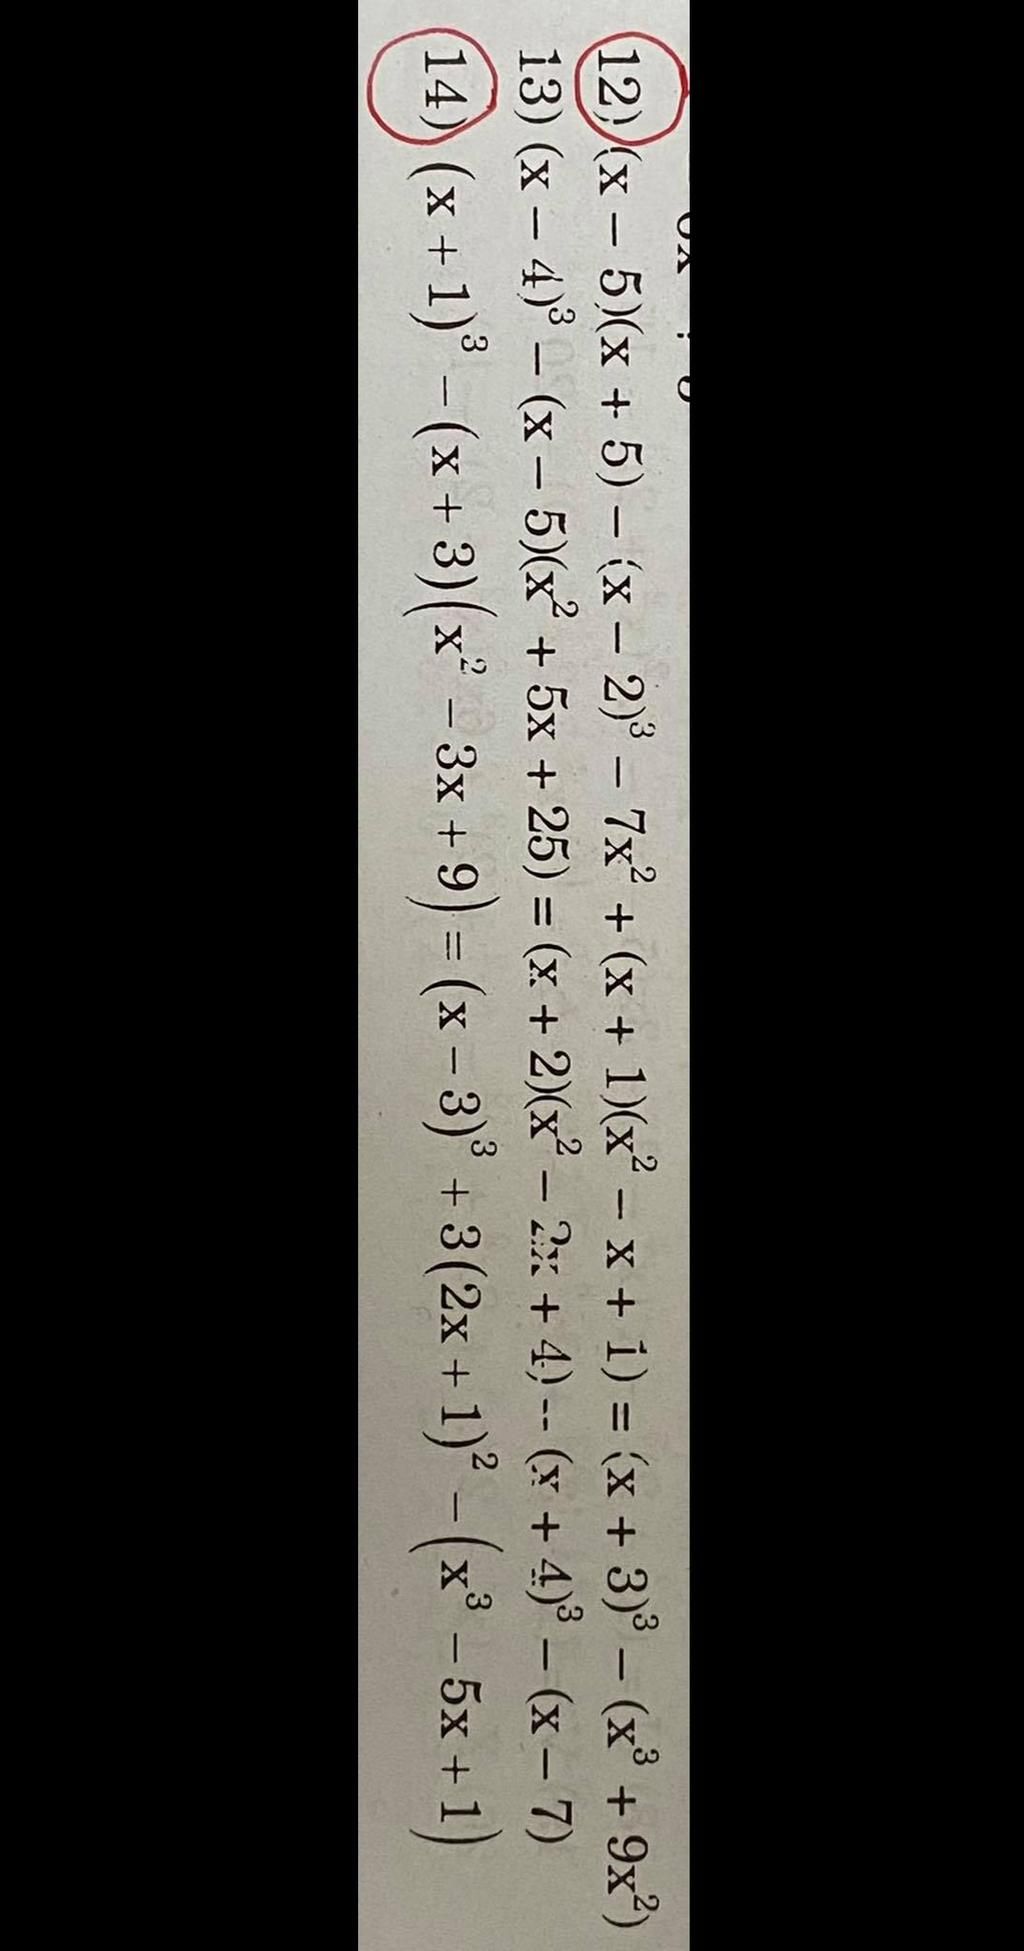 12) (x – 5)(x + 5) – (x – 2)³ – 7x² + (x + 1)(x² – x + 1) = (x + 3)³ – (x³ + 9x²)
13) (x – 4)³ – (x – 5)(x² + 5x + 25) = (x + 2)(x² – 2x + 4) – (x + 4)³ – (x – 7)
14) (x + 1)³ – (x + 3)(x² – 3x + 9) = (x – 3)³ + 3(2x + 1)² – (x³ – 5x + 1)